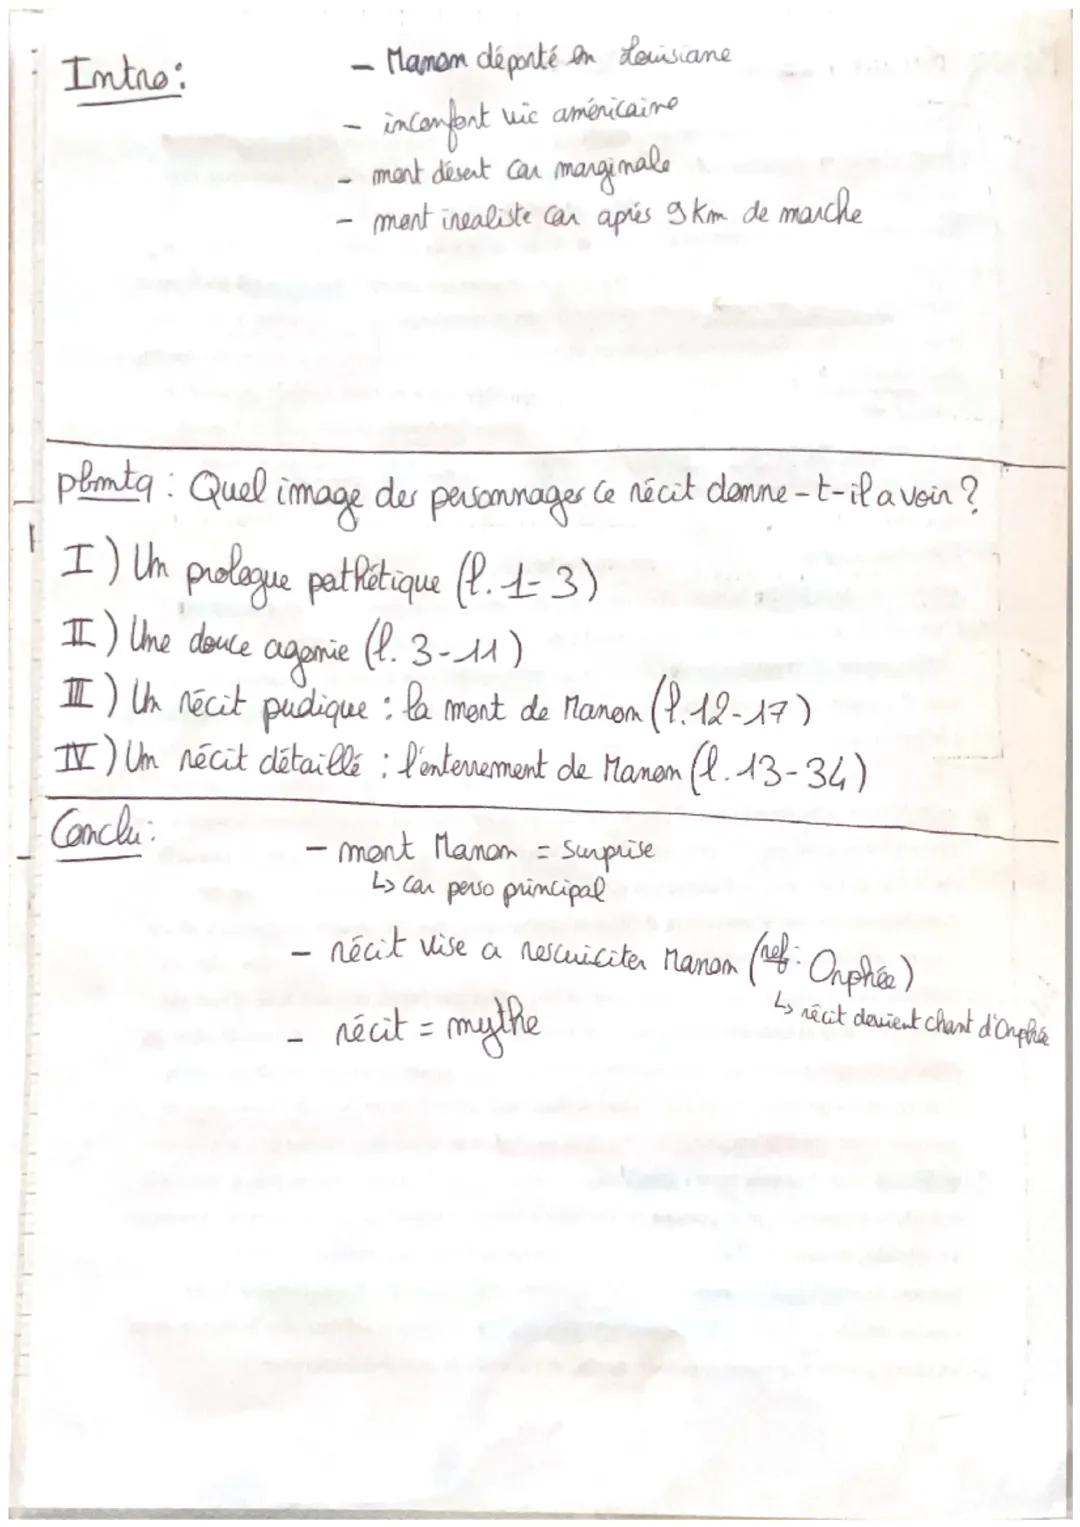 Intro:
- Manon déporté en Louisiane
- inconfort vie américaine
- mort désert car marginale
- mort irealiste car après 9 km de marche
pbmtq : Quel image des personnages ce récit donne-t-il a voir ?
I) Un prologue pathétique (l. 1-3)
II) Une douce agonie (l. 3-11)
III) Un récit pudique : la mort de Manon (l. 12-17)
IV) Un récit détaillé : l'enterrement de Manon (l. 13-34)
Conclu:
- mort Manon = surprise
↳ car perso principal
- récit vise a resuiciter Manon (ref: Orphée)
↳ récit devient chant d'Orphée
- récit = mythe